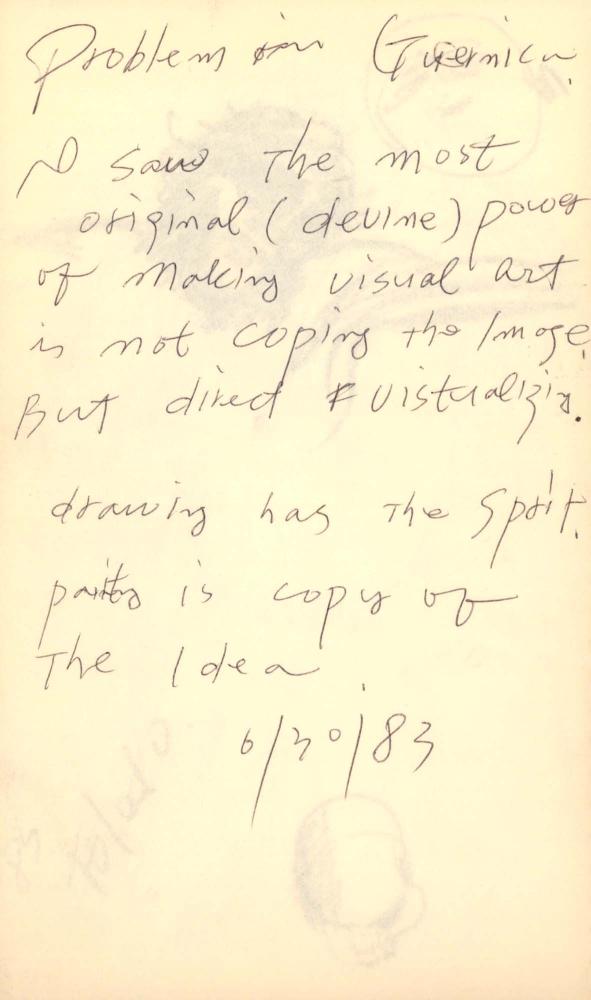 Problem in Guernica.
I saw the most
original (devine) power
of making visual art
is not coping the Image.
But direct vistualizing.
drawing has the Sprit.
paintng is copy of
The Idea.
6/30/83
Toledo
83